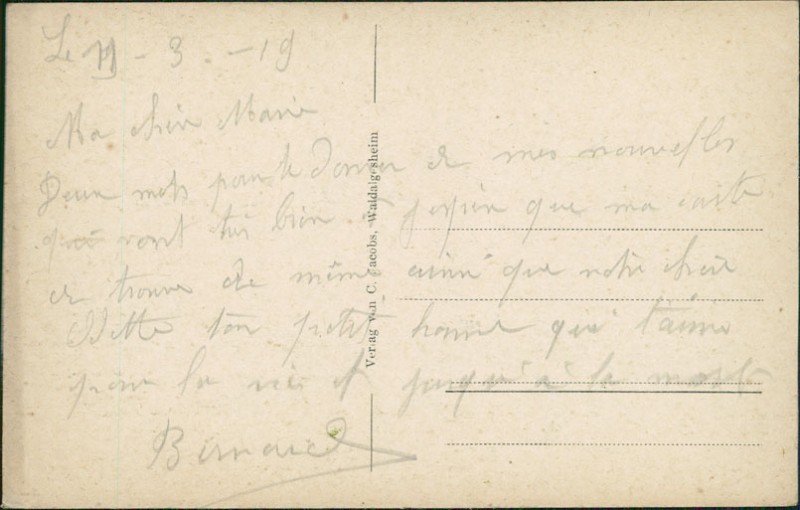 Le 11 - 3 - 19
Ma chère Marie
Deux mots pour te donner de mes nouvelles
qui vont très bien j'espère que ma carte
te trouve de même ainsi que notre chère
Odette ton petit homme qui t'aime
pour la vie et jusqu'à la mort
Bernard
Verlag von C. Jacobs, Waldalgesheim